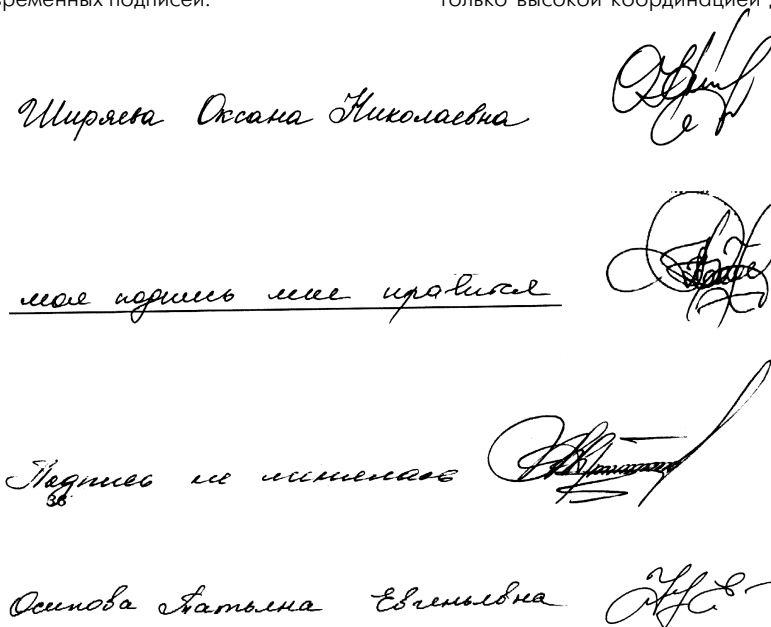 временных подписей.
только высокой координацией
Ширяева Оксана Николаевна
моя подпись мне нравится
Подпись не менялась
38
Осипова Татьяна Евгеньевна